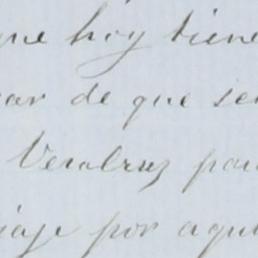 que hoy tiene
ar de que se
Veracruz para
iaje por aqu